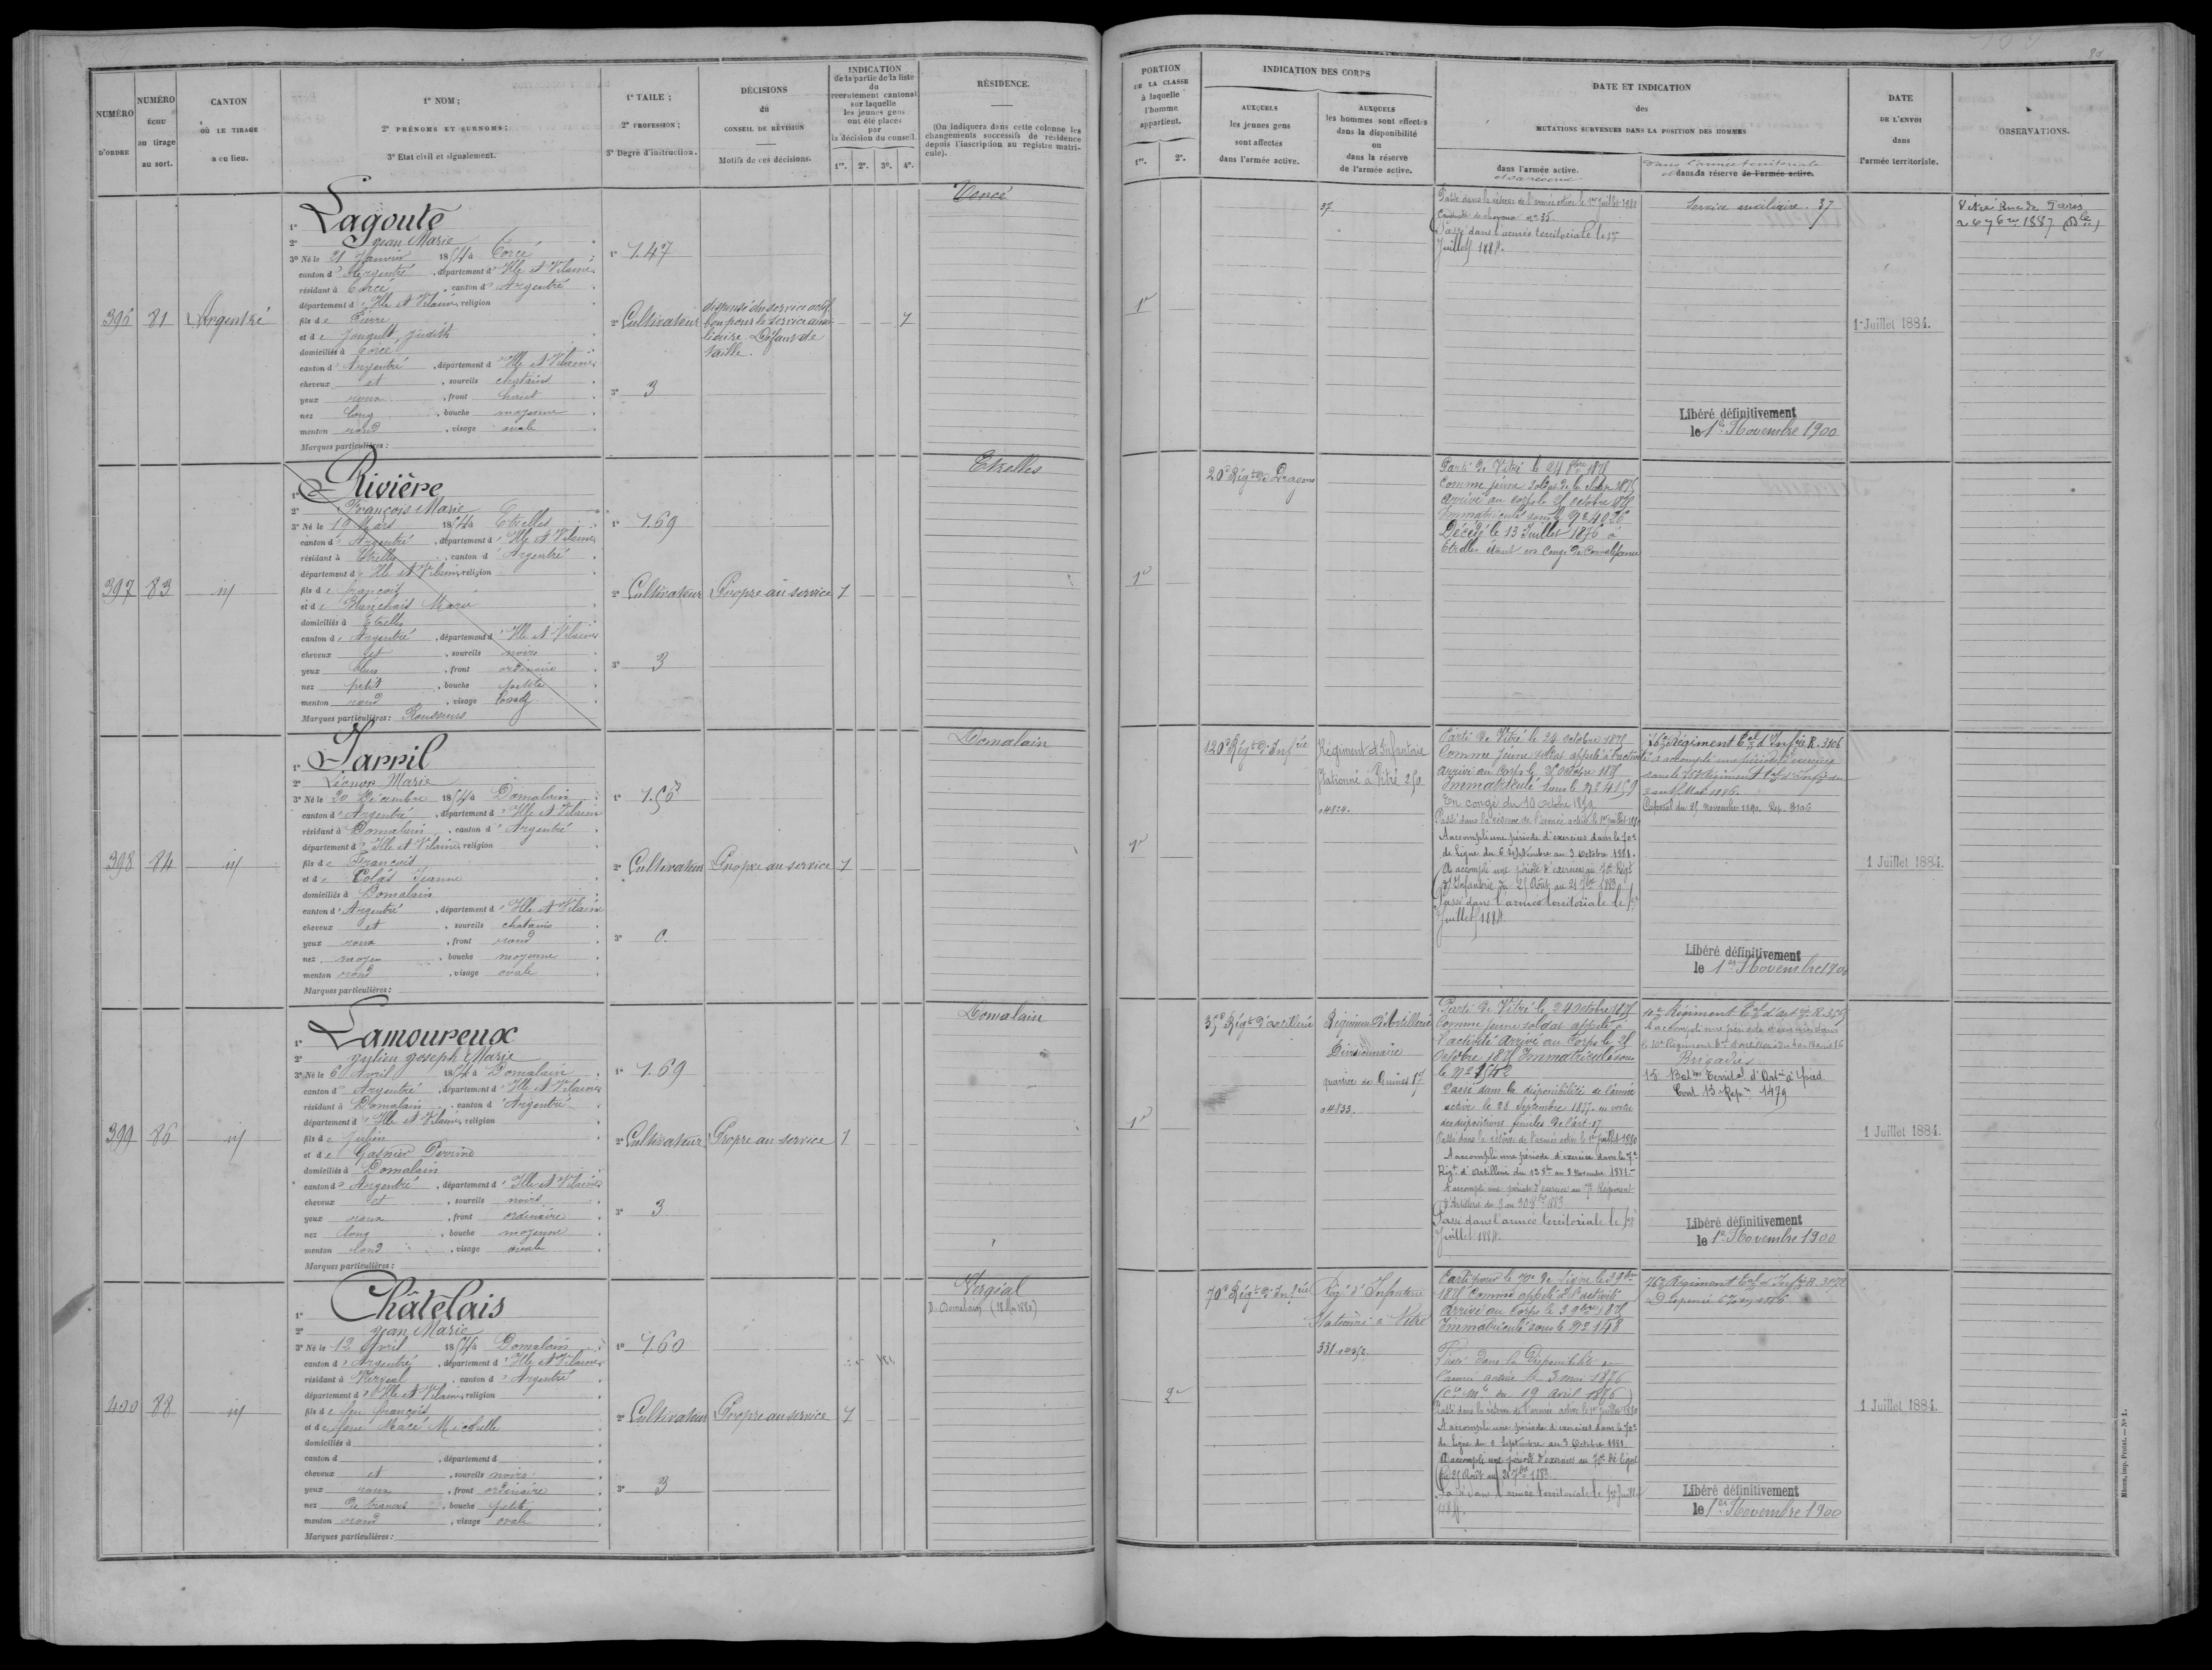 NUMÉRO
D'ORDRE
NUMÉRO
ÉCHU
au tirage
au sort.
CANTON
OÙ LE TIRAGE
a eu lieu.
1° NOM;
2° PRÉNOMS ET SURNOMS;
3° Etat civil et signalement.
1° TAILE;
2° PROFESSION;
3° Degré d'instruction.
DÉCISIONS
du
CONSEIL DE RÉVISION
Motifs de ces décisions.
INDICATION
de la partie de la liste
du
recrutement cantonal
sur laquelle
les jeunes gens
ont été placés
par
la décision du conseil.
1re. 2e. 3e. 4e.
RÉSIDENCE.
(On indiquera dans cette colonne les
changements successifs de résidence
depuis l'inscription au registre matri-
cule).
396 81 Argentré
1° Lagoute
2° Jean Marie
3° Né le 21 Janvier 1854 à Torcé
canton d' Argentré, département d' Ille et Vilaine
résidant à Torcé, canton d' Argentré
département d' Ille et Vilaine, religion
fils de Pierre
et de Judith
domiciliés à Torcé
canton d' Argentré, département d' Ille et Vilaine
cheveux et, sourcils chatains
yeux roux, front haut
nez long, bouche moyenne
menton rond, visage ovale
Marques particulières:
1° 1.47
2° Cultivateur
3° 3
dispensé du service actif
bon pour le service auxi-
liaire Défaut de
taille.
Torcé
397 83 id
1° Rivière
2° François Marie
3° Né le 19 Mars 1854 à Etrelles
canton d' Argentré, département d' Ille et Vilaine
résidant à Etrelles, canton d' Argentré
département d' Ille et Vilaine, religion
fils de François
et de Blanchais Marie
domiciliés à Etrelles
canton d' Argentré, département d' Ille et Vilaine
cheveux et, sourcils noirs
yeux bleus, front ordinaire
nez petit, bouche petite
menton rond, visage
Marques particulières: Rousseurs
1° 1.69
2° Cultivateur
3° 3
Propre au service 1
Etrelles
398 84 id
1° Jarril
2° Léonor Marie
3° Né le 20 Décembre 1854 à Domalain
canton d' Argentré, département d' Ille et Vilaine
résidant à Domalain, canton d' Argentré
département d' Ille et Vilaine, religion
fils de François
et de Colas Jeanne
domiciliés à Domalain
canton d' Argentré, département d' Ille et Vilaine
cheveux et, sourcils chatains
yeux roux, front rond
nez moyen, bouche moyenne
menton rond, visage ovale
Marques particulières:
2° Cultivateur
3° 0.
Propre au service 1
Domalain
399 86 id
1° Lamoureux
2° Julien Joseph Marie
3° Né le 6 Avril 1854 à Domalain
canton d' Argentré, département d' Ille et Vilaine
résidant à Domalain, canton d' Argentré
département d' Ille et Vilaine, religion
fils de Julien
et de Gasnier Perrine
domiciliés à Domalain
canton d' Argentré, département d' Ille et Vilaine
cheveux et, sourcils noirs
yeux roux, front ordinaire
nez long, bouche moyenne
menton rond, visage ovale
Marques particulières:
1° 1.69
2° Cultivateur
3° 3
Propre au service 1
Domalain
400 88 id
1° Châtelais
2° Jean Marie
3° Né le 12 Avril 1854 à Domalain
canton d' Argentré, département d' Ille et Vilaine
résidant à Vergéal, canton d' Argentré
département d' Ille et Vilaine, religion
fils de feu François
et de feue Macé Michelle
domiciliés à
canton d, département d
cheveux et, sourcils noirs
yeux roux, front ordinaire
nez de travers, bouche petite
menton rond, visage ovale
Marques particulières:
1° 1.60
2° Cultivateur
3° 3
Propre au service 1
Vergéal
D. Domalain (1880)
PORTION
DE LA CLASSE
à laquelle
l'homme
appartient.
1re. 2e.
INDICATION DES CORPS
AUXQUELS
les jeunes gens
sont affectés
dans l'armée active.
AUXQUELS
les hommes sont effectés
dans la disponibilité
ou
dans la réserve
de l'armée active.
DATE ET INDICATION
des
MUTATIONS SURVENUES DANS LA POSITION DES HOMMES
dans l'armée active.
et sa réserve
dans l'armée territoriale
et dans la réserve de l'armée active.
DATE
DE L'ENVOI
dans
l'armée territoriale.
OBSERVATIONS.
1e
37
Passé dans la réserve de l'armée active le 1er Juillet 1880
Passé dans l'armée territoriale le 1er
Juillet 1884.
Service auxiliaire. 37
Libéré définitivement
le 1er Novembre 1900
1 Juillet 1884.
Vitré Rue de Paris
1e
20e Régt de Dragons
Parti de Vitré le 24 8bre 1875
Comme jeune soldat de la classe
Arrivé au corps le 25 octobre 1875
Immatriculé sous le No
Décédé le 13 Juillet 1876 à
Etrelles étant en Congé de Convalescence
1e
120e Régt d'Infrie
Régiment d'Infanterie
Stationné à Vitré 250
04824.
Parti de Vitré le 24 octobre 1875
Comme jeune soldat appelé à l'activité
Arrivé au Corps le 25 octobre 1875
Immatriculé sous le No 4159
En congé du 10 octobre 1879
Passé dans la réserve de l'armée active le 1er Juillet 1880
A accompli une période d'exercices dans le 70e
de Ligne du 6 Septembre au 3 Octobre 1881.
A accompli une période d'exercices au 70e Régt
d'Infanterie du 25 Août au 21 7bre 1883
Passé dans l'armée territoriale le 1er
Juillet 1884.
76e Régiment Tal d'Infrie R. 3106
A accompli une période d'exercices
Caporal du 25 novembre 1890. Rep. 3106
Libéré définitivement
le 1er Novembre 1900
1 Juillet 1884.
1e
35e Régt d'artillerie
Régiment d'Artillerie
Divisionnaire
quartier de Guines
04833.
Parti de Vitré le 24 octobre 1875
Comme jeune soldat appelé à
l'activité Arrivé au Corps le 25
Octobre 1875 Immatriculé sous
Passé dans la disponibilité de l'armée
active le 28 Septembre 1877 en vertu
des dispositions finales de l'art. 17
Passé dans la réserve de l'armée active le 1er Juillet 1880
A accompli une période d'exercice dans le 7e
Régt d'Artillerie
A accompli une période d'exercice au 7e Régiment
d'Artillerie du 3 au 30 8bre 1883
Passé dans l'armée territoriale le 1er
Juillet 1884.
10e Régiment Tal d'artrie
Brigadier
15e Baton Territal d'Artrie à pied
Libéré définitivement
le 1er Novembre 1900
1 Juillet 1884.
2e
70e Régt d'Infrie
Régt d'Infanterie
Stationné à Vitré
331
Parti pour le 70e de ligne le 3 9bre
1875 Comme appelé à l'activité
Arrivé au Corps le 3 9bre 1875
Immatriculé sous le No 148
Passé dans la disponibilité de
l'armée active le 3 mai 1876
(Cre Mle du 19 avril 1876)
Passé dans la réserve de l'armée active le 1er Juillet 1880
A accompli une période d'exercices dans le 70e
de Ligne du 6 Septembre au 3 Octobre 1881.
A accompli une période d'exercices au 70e de ligne
du 25 Août au 21 7bre 1883
Passé dans l'armée territoriale le 1er Juillet
1884.
76e Régiment Tal d'Infrie
Libéré définitivement
le 1er Novembre 1900
1 Juillet 1884.